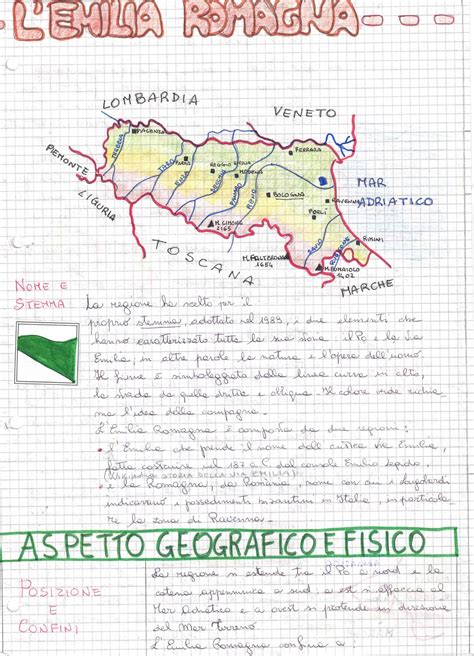 L'EMILIA ROMAGNA
LOMBARDIA
VENETO
PIEMONTE
PIACENZA
TREBBIA
TARO
PARMA
REGGIO EMILIA
MODENA
FERRARA
SECCHIA
PANARO
RENO
BOLOGNA
MAR
ADRIATICO
RAVENNA
FORLÌ
LIGURIA
M. CIMONE
2165
SAVIO
RUBICONE
RIMINI
TOSCANA
M. FALTERONA
1654
M. FUMAIOLO
1407
MARCHE
NOME E
STEMMA
La regione ha scelto per il
proprio stemma, adottato nel 1989, i due elementi che
hanno caratterizzato tutta la sua storia: il Po e la via
Emilia, in altre parole la natura e l'opera dell'uomo.
Il fiume è simboleggiato dalla linea curva in alto,
la strada da quella dritta e obliqua. Il colore verde richia-
ma l'idea della campagna.
L'Emilia Romagna è composta da due regioni:
• l'Emilia che prende il nome dall'antica via Emilia,
fatta costruire nel 187 a.C. dal console Emilio Lepido.
STORIA DELLA VIA EMILIA
• e la Romagna, da Romània, nome con cui i longobardi
indicavano i possedimenti bizantini in Italia, in particola-
re la zona di Ravenna.
ASPETTO GEOGRAFICO E FISICO
POSIZIONE
E
CONFINI
La regione si estende tra il Po a nord e la
catena appenninica a sud; a est si affaccia al
Mar Adriatico e a ovest si protende in direzione
del Mar Tirreno
L'Emilia Romagna confina a: